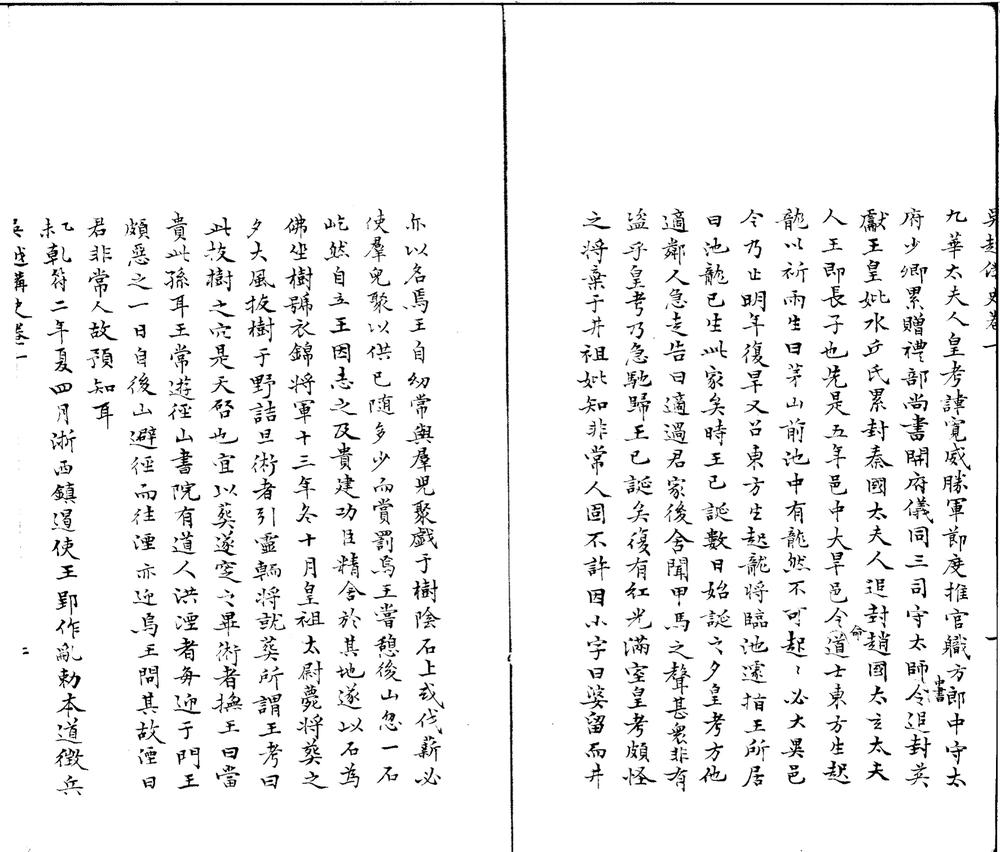 吳越備史卷一
九華太夫人皇考諱寬威勝軍節度推官職方郎中守太
府少卿累贈禮部尚書開府儀同三司守太師中書令追封英
獻王皇妣水丘氏累封秦國太夫人追封趙國太立太夫
人王即長子也先是五年邑中大旱邑令命道士東方生起
龍以祈雨生曰茅山前池中有龍然不可起〻必大異邑
令乃止明年復旱又召東方生起龍將臨池遽指王所居
曰池龍已生此家矣時王已誕數日始誕之夕皇考方他
適鄰人急走告曰適過君家後舍聞甲馬之聲甚衆非有
盜乎皇考乃急馳歸王已誕矣復有紅光滿室皇考頗怪
之將棄于井祖妣知非常人固不許因小字曰婆留而井
亦以名焉王自幼常與羣兒聚戲于樹陰石上或伐薪必
使羣兒聚以供已隨多少而賞罰焉王嘗憩後山忽一石
屹然自立王因志之及貴建功臣精舍於其地遂以石為
佛坐樹號衣錦將軍十三年冬十月皇祖太尉薨將葬之
夕大風拔樹于野詰旦術者引靈輀將就葬所謂王考曰
此拔樹之穴是天啓也宜以葬遂窆之畢術者撫王曰當
貴此孫耳王常遊徑山書院有道人洪湮者每迎于門王
頗惡之一日自後山避徑而往湮亦迎焉王問其故湮曰
君非常人故預知耳
乾符二年夏四月浙西鎮遏使王郢作亂勅本道徵兵
吳越備史卷一
二